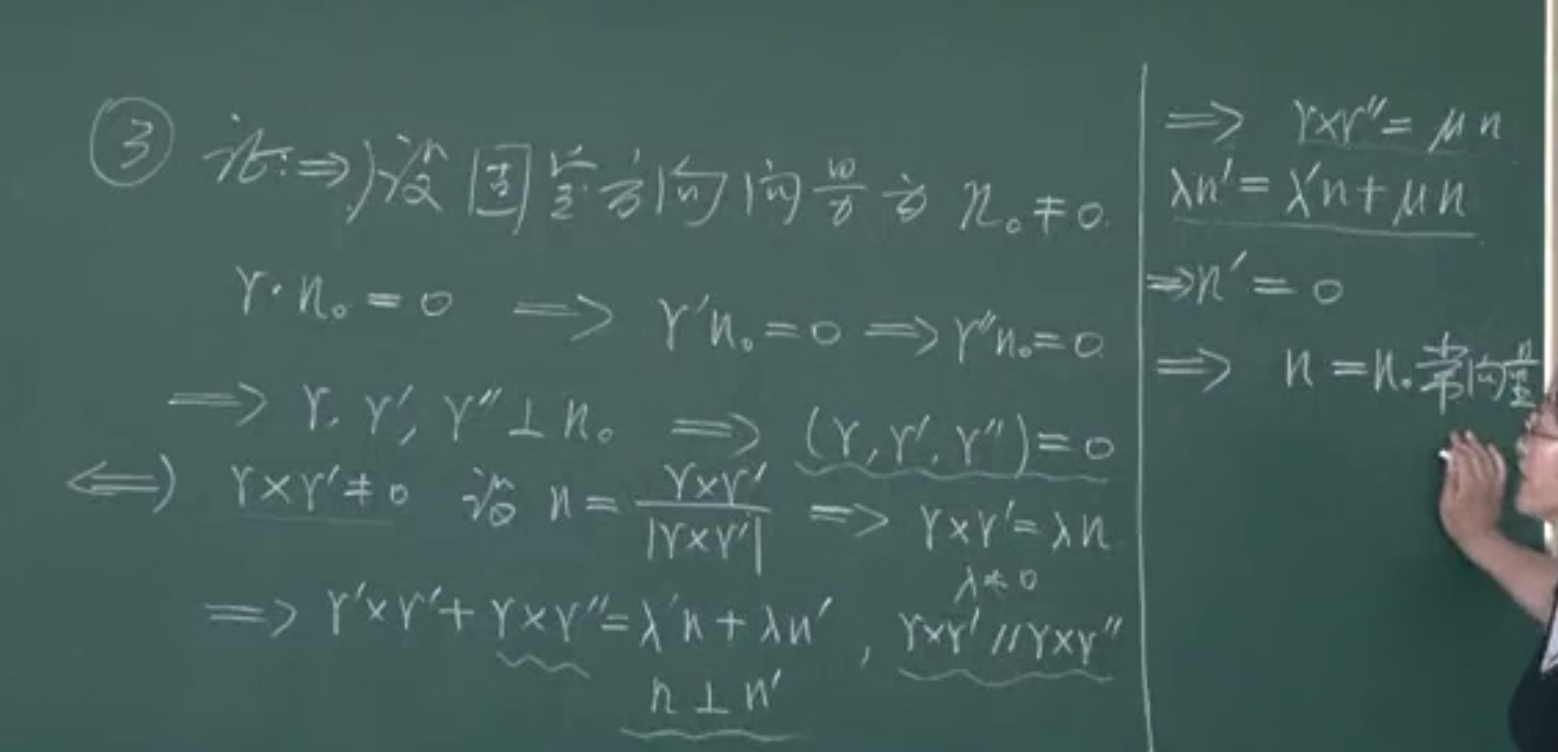 ③ 证:⇒) 设固定方向向量为 n₀≠0.
r·n₀=0 ⇒ r′n₀=0 ⇒ r″n₀=0.
⇒ r, r′, r″⊥n₀ ⇒ (r,r′,r″)=0
⇐) r×r′≠0 设 n=r×r′/|r×r′| ⇒ r×r′=λn
λ≠0
⇒ r′×r′+r×r″=λ′n+λn′, r×r′∥r×r″
n⊥n′
⇒ r×r″=μn
λn′=λ′n+μn
⇒n′=0
⇒ n=n₀常向量